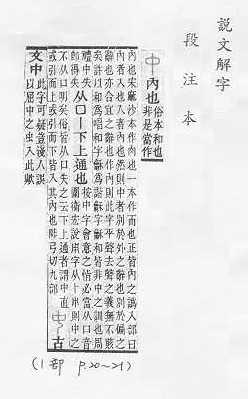 說文解字
段注本
中 內也 俗本和也
非是當作
內也宋麻沙本作肉也一本作而也正皆內之譌入部曰
內者入也入者內也然則中者別於外之辭也別於偏之
辭也亦合宜之辭也作內則此字平聲去聲之義無不賅
矣許以和爲唱和字龢爲諧龢字龢和皆非中之訓也周
禮中失
卽得失
从口丨下上通也
按中字會意之恉必當从囗音
圍衛宏說用字从卜中則中之
不从口明矣俗皆从口失之云下上通者謂中直
或引而上或引而下皆入其內也陟弓切九部
古
文中
此字可疑豈淺人誤
以屈中之虫入此歟
(1部 P.20~21)